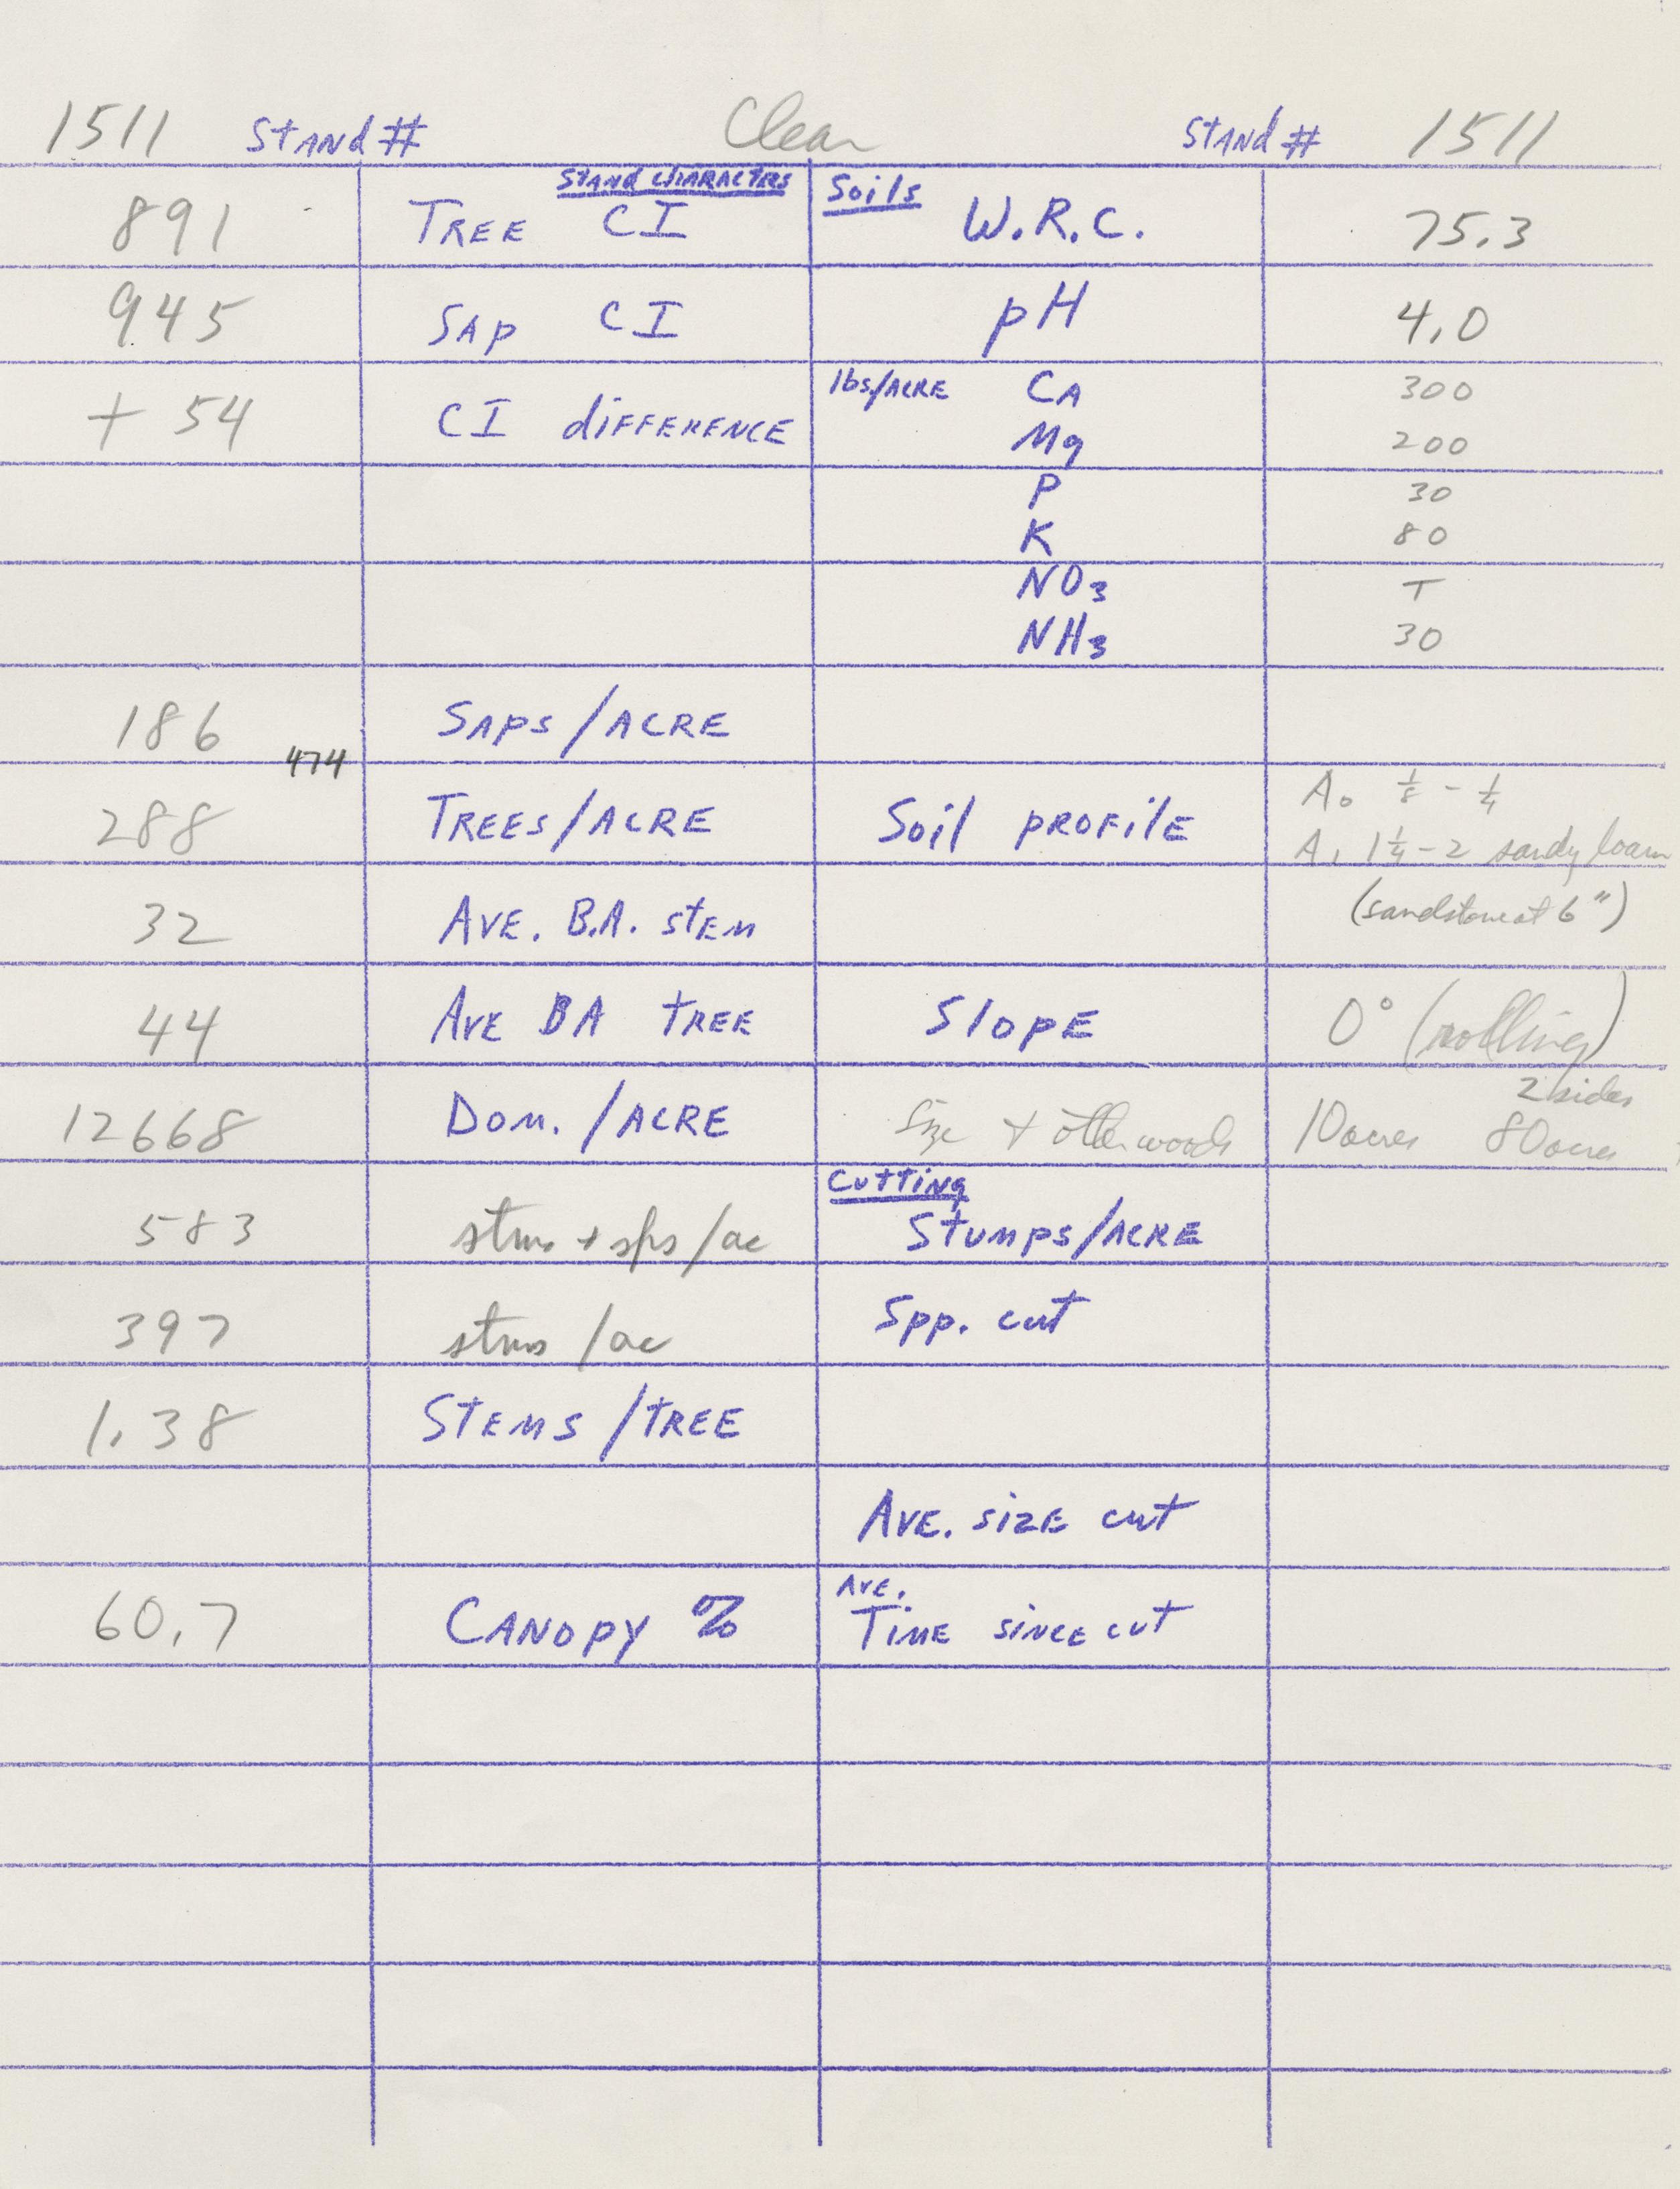 1511 Stand # Clear Stand # 1511
Stand Characters Soils
891 Tree CI W.R.C. 75.3
945 Sap CI pH 4.0
+ 54 CI difference lbs/Acre Ca 300
Mg 200
P 30
K 80
NO3 T
NH3 30
186 Saps/Acre
474
288 Trees/Acre Soil profile A0 1/8 - 1/4
A1 1 1/4 - 2 sandy loam
32 Ave. B.A. stem (sandstone at 6")
44 Ave BA tree Slope 0° (rolling)
2 sides
12668 Dom./Acre Size + other woods 10 acres 80 acres
Cutting
583 stms + sps/ac Stumps/Acre
397 stms/ac Spp. cut
1.38 Stems/tree
Ave. size cut
60.7 Canopy % Ave. Time since cut